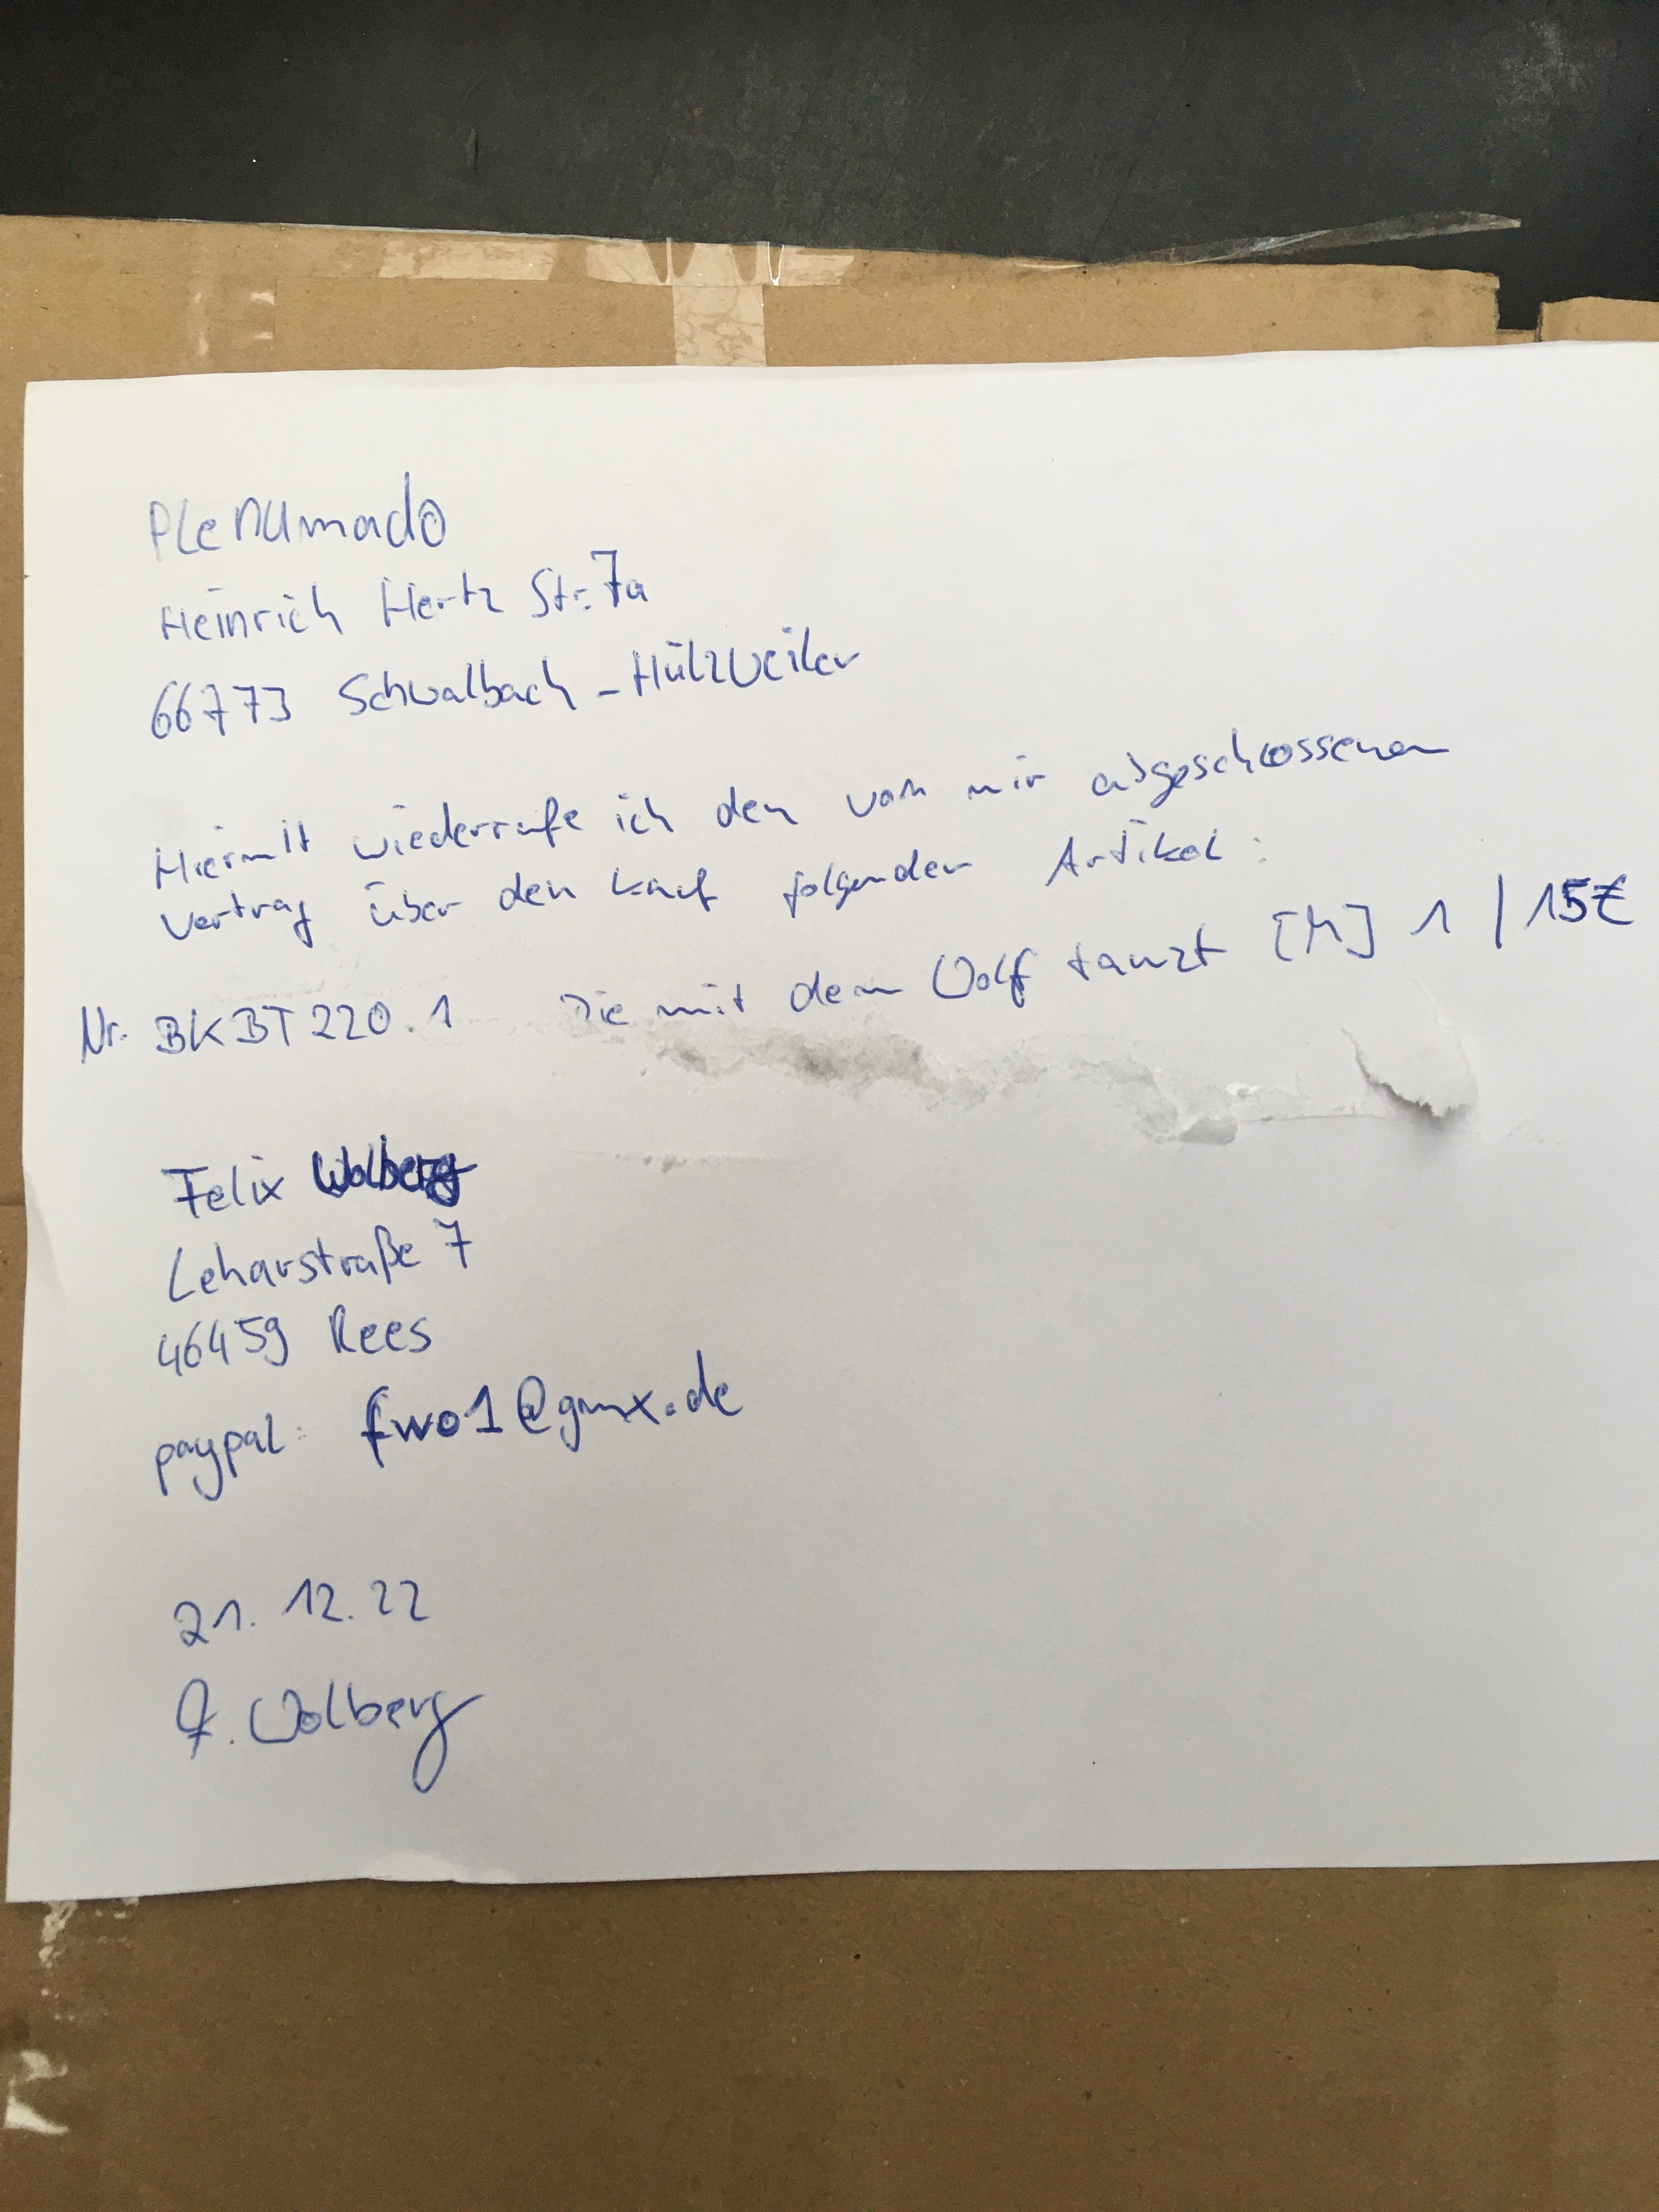 Plenumado
Heinrich Hertz Str. 7a
66773 Schwalbach-Hülzweiler
Hiermit wiederrufe ich den von mir abgeschlossenen
Vertrag über den Kauf folgender Artikel:
Nr. BKBT220.1 Die mit dem Wolf tanzt [M] 1 / 15€
Felix Wolberg
Leharstraße 7
46459 Rees
paypal: fwo1@gmx.de
21.12.22
F. Wolberg